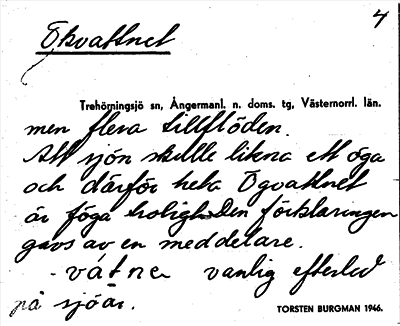 4
Ökvattnet
Trehörningsjö sn, Ångermanl. n. doms. tg, Västernorrl. län.
men flera tillflöden.
Att sjön skulle likna ett öga
och därför heta Ögvattnet
är föga troligt. Den förklaringen
gavs av en meddelare.
-vátne vanlig efterled
på sjöar.
TORSTEN BURGMAN 1946.